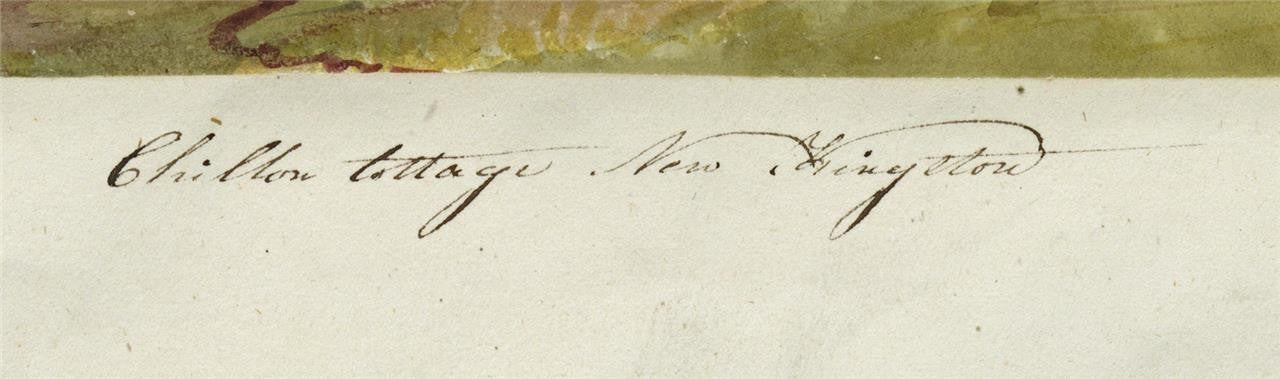 Chillon Cottage New Kingston